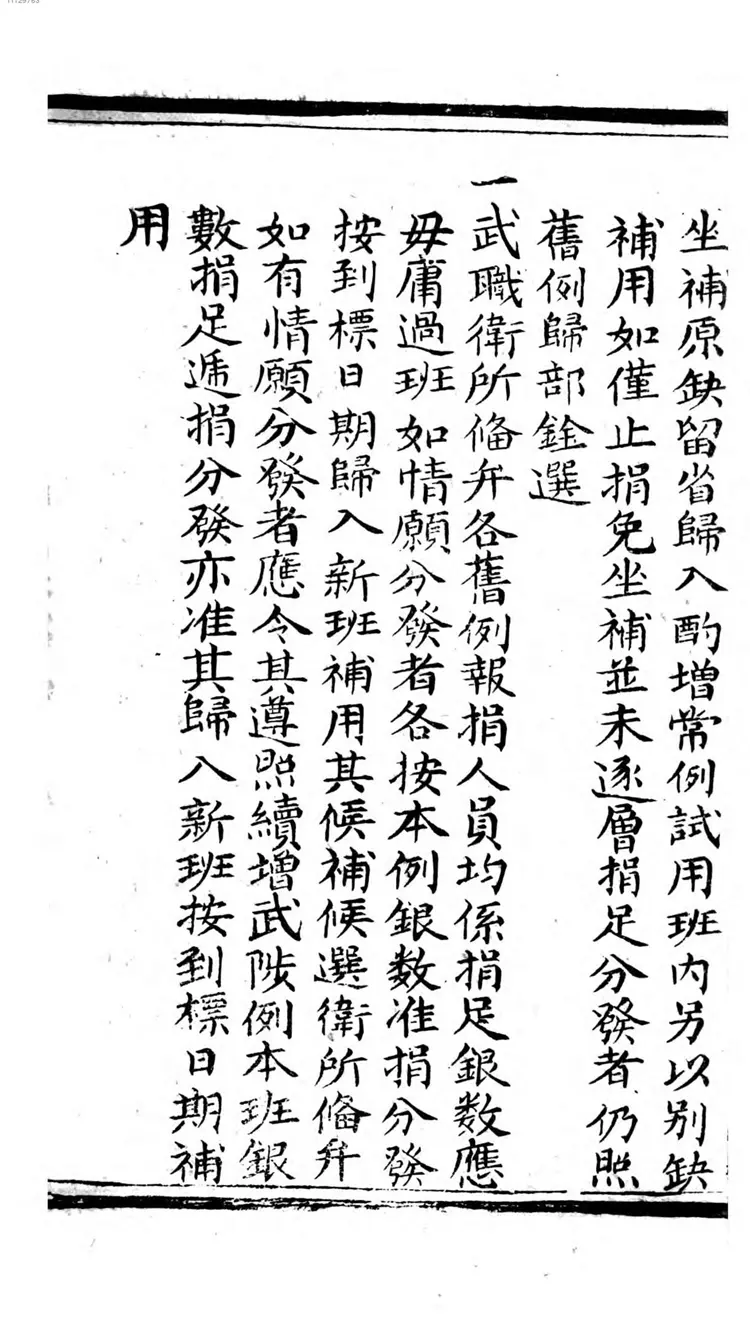 11129763
坐補原缺留省歸入酌增常例試用班內另以別缺
補用如僅止捐免坐補並未逐層捐足分發者仍照
舊例歸部銓選
一武職衛所俻弁各舊例報捐人員均係捐足銀数應
毋庸過班如情願分發者各按本例銀数准捐分發
按到標日期歸入新班補用其候補候選衛所俻弁
如有情願分發者應令其遵照續增武陟例本班銀
數捐足遞捐分發亦准其歸入新班按到標日期補
用